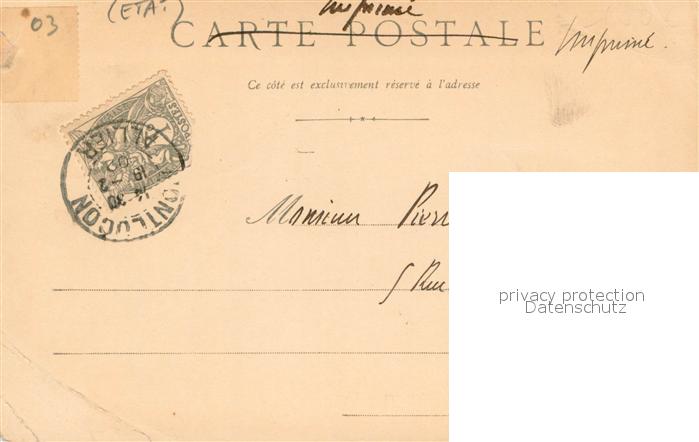 03
(ETAT)
Imprimé
CARTE POSTALE
Imprimé.
Ce côté est exclusivement réservé à l'adresse
POSTES
MONTLUCON
ALLIER
14 30
15
02
Monsieur Pierr
5 Rue
privacy protection
Datenschutz